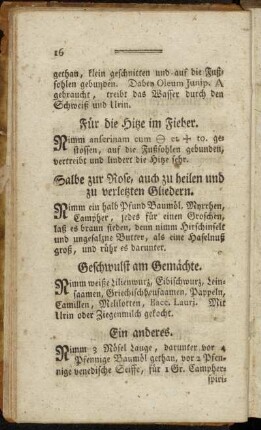 16
gethan, klein geschnitten und auf die Fuß⸗
sohlen gebunden. Dabey Oleum Junip. A
gebraucht, treibt das Wasser durch den
Schweiß und Urin.
Für die Hitze im Fieber.
Nimm anserinam cum ⊖ cc + to. ge⸗
stossen, auf die Fußsohlen gebunden,
vertreibt und lindert die Hitze sehr.
Salbe zur Rose, auch zu heilen und
zu verletzten Gliedern.
Nimm ein halb Pfund Baumöl, Myrrhen,
Campher, jedes für einen Groschen,
laß es braun sieden, denn nimm Hirschinselt
und ungesalzne Butter, als eine Haselnuß
groß, und rühr es darunter.
Geschwulst am Gemächte.
Nimm weiße Lilienwurz, Eibischwurz, Lein⸗
saamen, Griechischheusaamen, Pappeln,
Camillen, Meliloten, Bacc. Laurj. Mit
Urin oder Ziegenmilch gekocht.
Ein anderes.
Nimm 3 Nösel Lauge, darunter vor 4
Pfennige Baumöl gethan, vor 2 Pfen⸗
nige venedische Seiffe, für 1 Gr. Campher⸗
spiri⸗